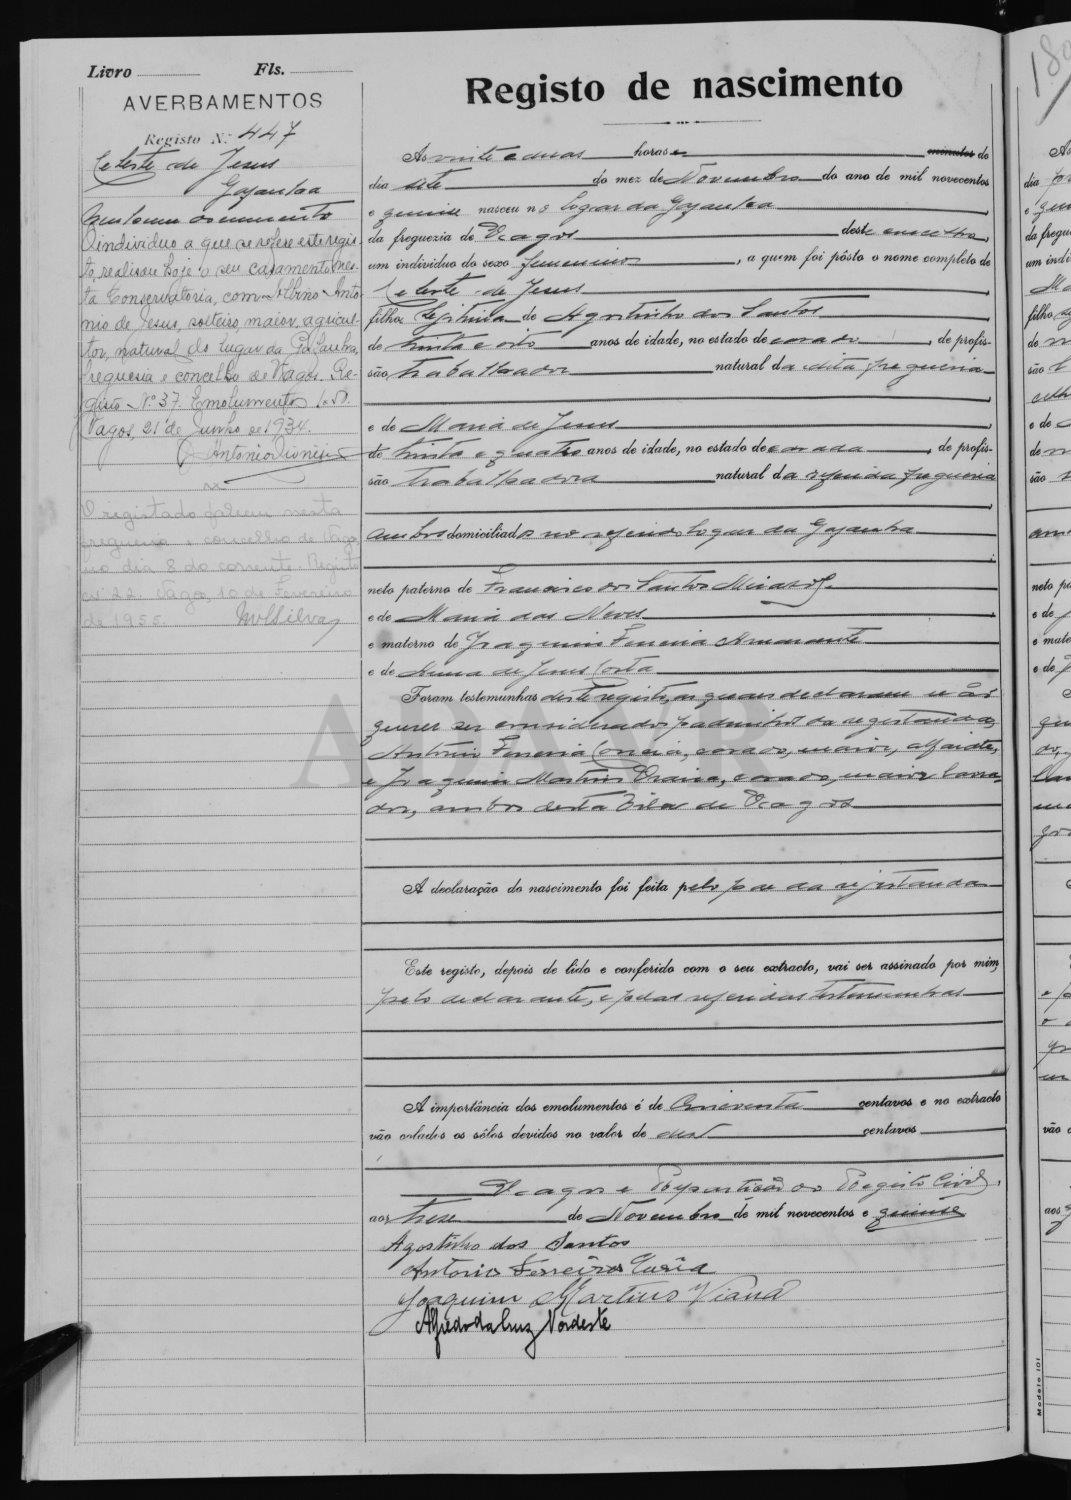 Livro Fls.
AVERBAMENTOS
Registo N.º 447
Celeste de Jesus
Gafanha
O individuo a que se refere este regis-
to, realisou hoje o seu casamento nes-
ta Conservatoria, com Albino Anto-
nio de Jesus, solteiro, maior, agricul-
tor, natural do lugar da Gafanha,
freguesia e concelho de Vagos. Re-
gisto Nº 37. Emolumentos
Vagos, 21 de Junho de 1934.
O registado faleceu nesta
freguesia e concelho de Vagos
no dia 8 do corrente. Registo
nº 22. Vagos, 10 de Fevereiro
de 1955.
Registo de nascimento
Ás vinte e duas horas e minutos do
dia sete do mez de Novembro do ano de mil novecentos
e quinse nasceu no logar da Gafanha
da freguezia de Vagos deste concelho,
um individuo do sexo femenino, a quem foi pôsto o nome completo de
Celeste de Jesus
filha legitima de Agostinho dos Santos
de trinta e oito anos de idade, no estado de casado, de profis-
são trabalhador natural da dita freguesia
e de Maria de Jesus
de trinta e quatro anos de idade, no estado de casada, de profis-
são trabalhadora natural da referida freguesia
ambos domiciliados no referido logar da Gafanha
neto paterno de Francisco dos Santos
e de Maria das Neves
e materno de Joaquim Ferreira
e de Anna de Jesus Costa
Foram testemunhas deste registo, as quais declararam
querer ser considerados padrinhos da registanda,
António Ferreira casado, maior, alfaiate,
e Joaquim Martins Viana, casado, maior, lavra-
dor, ambos desta Vila de Vagos
A declaração do nascimento foi feita pelo pae da registanda
Este registo, depois de lido e conferido com o seu extracto, vai ser assinado por mim,
pelo declarante, e pelas referidas testemunhas
A importância dos emolumentos é de cincoenta centavos e no extracto
vão colados os sêlos devidos no valor de dez centavos
Vagos e Repartição do Registo Civil,
aos treze de Novembro de mil novecentos e quinse
Agostinho dos Santos
Antonio Ferreira
Joaquim Martins Viana
Alfredo da Cruz Nordeste
Modelo 101